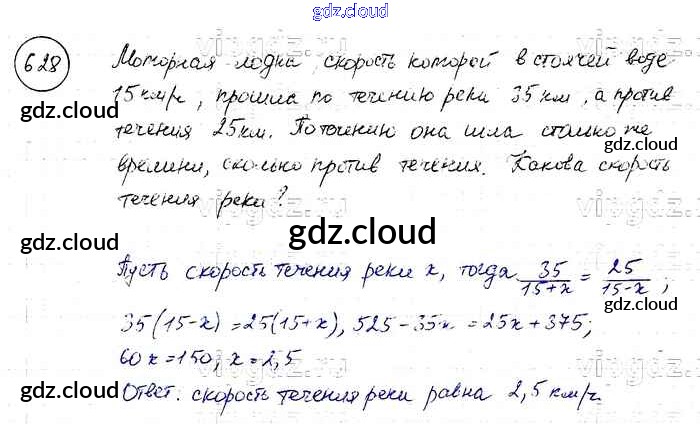 gdz.cloud
628
Моторная лодка, скорость которой в стоячей воде
15 км/ч, прошла по течению реки 35 км, а против
gdz.cloud gdz.cloud
течения 25 км. По течению она шла столько же
времени, сколько против течения. Какова скорость
течения реки?
gdz.cloud gdz.cloud gdz.cloud
Пусть скорость течения реки x, тогда 35/(15+x) = 25/(15-x);
gdz.cloud
35(15-x)=25(15+x), 525-35x=25x+375;
60x=150, x=2,5
gdz.cloud gdz.cloud
Ответ. скорость течения реки равна 2,5 км/ч